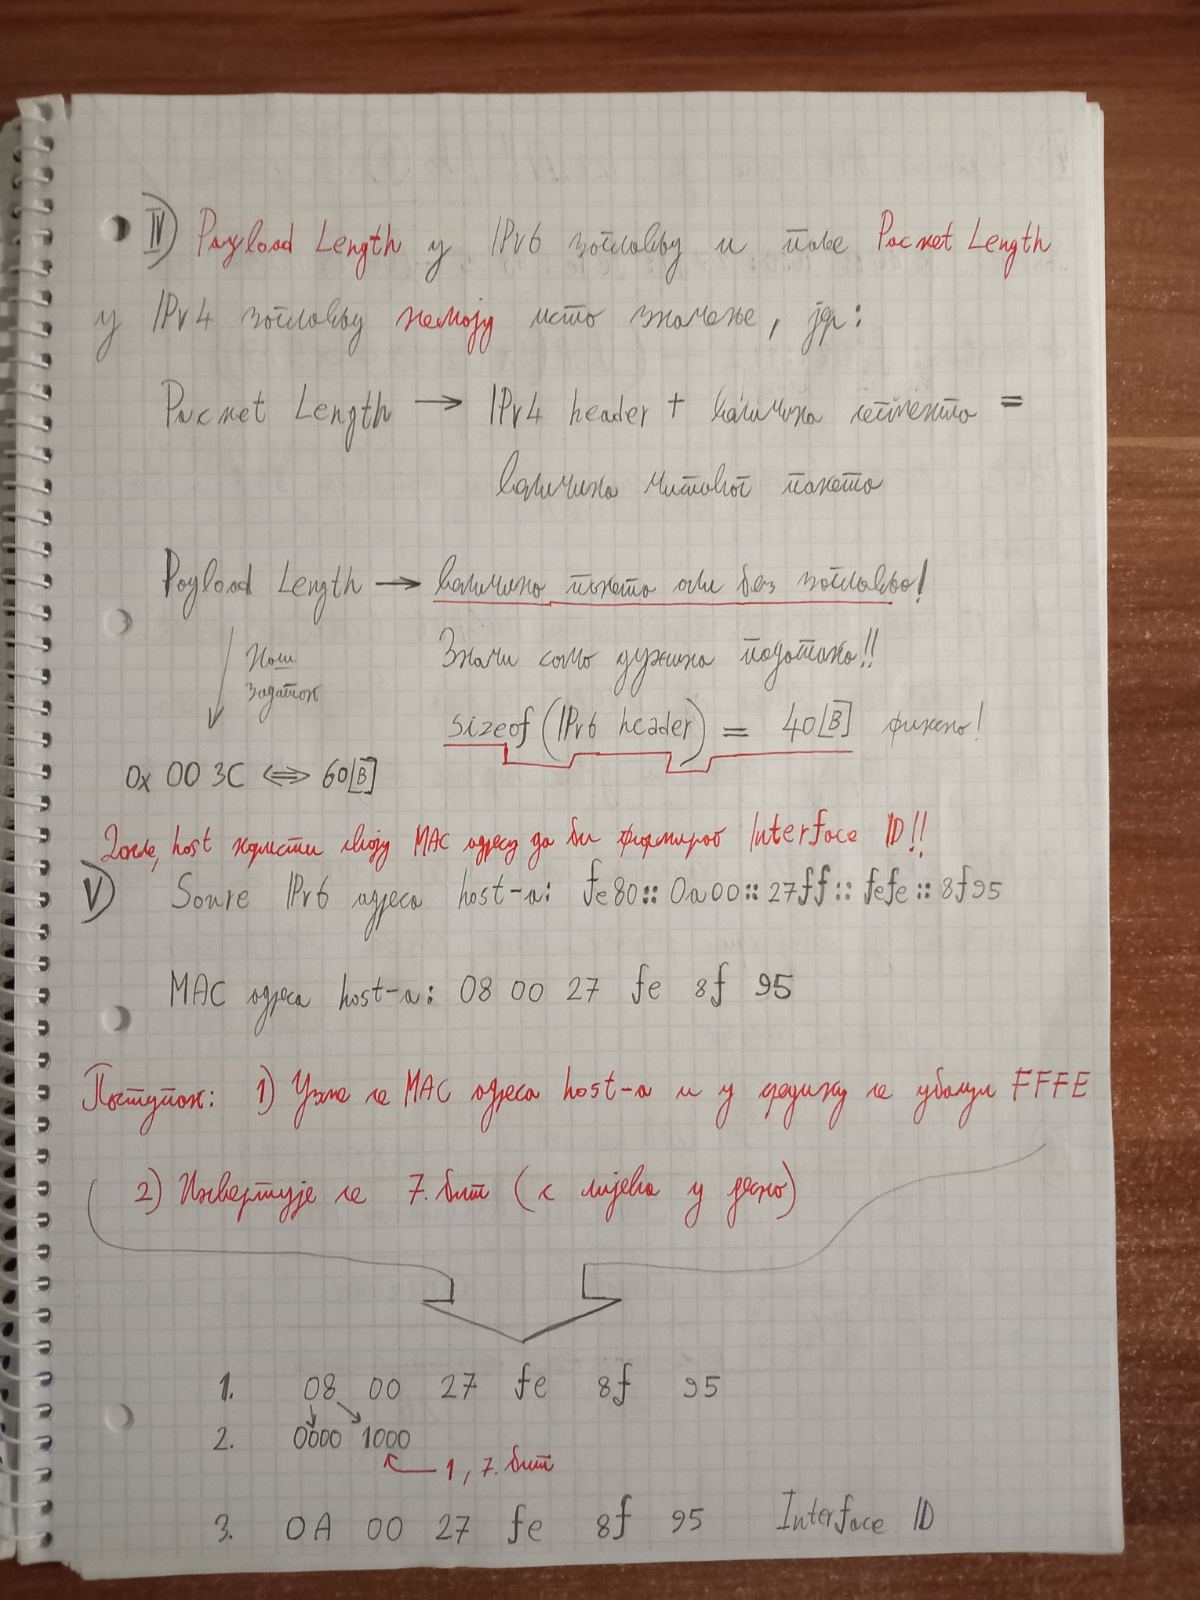 IV) Payload Length у IPv6 заглављу и поље Packet Length
у IPv4 заглављу немају исто значење, јер:
Packet Length → IPv4 header + величина сегмента =
величина читавог пакета
Payload Length → величина пакета али без заглавља!
Наш
Значи само дужина података!!
задатак
sizeof (IPv6 header) = 40[B] фиксно!
0x 00 3C ⟺ 60[B]
Дакле, host користи своју MAC адресу да би формирао Interface ID!!
V) Sourse IPv6 адреса host-а: fe80::0a00::27ff::fefe::8f95
MAC адреса host-а: 08 00 27 fe 8f 95
Поступак: 1) Узме се MAC адреса host-а и у средину се убаци FFFE
2) Инвертује се 7. бит (с лијева у десно)
1. 08 00 27 fe 8f 95
2. 0000 1000
1, 7. бит
3. 0A 00 27 fe 8f 95 Interface ID